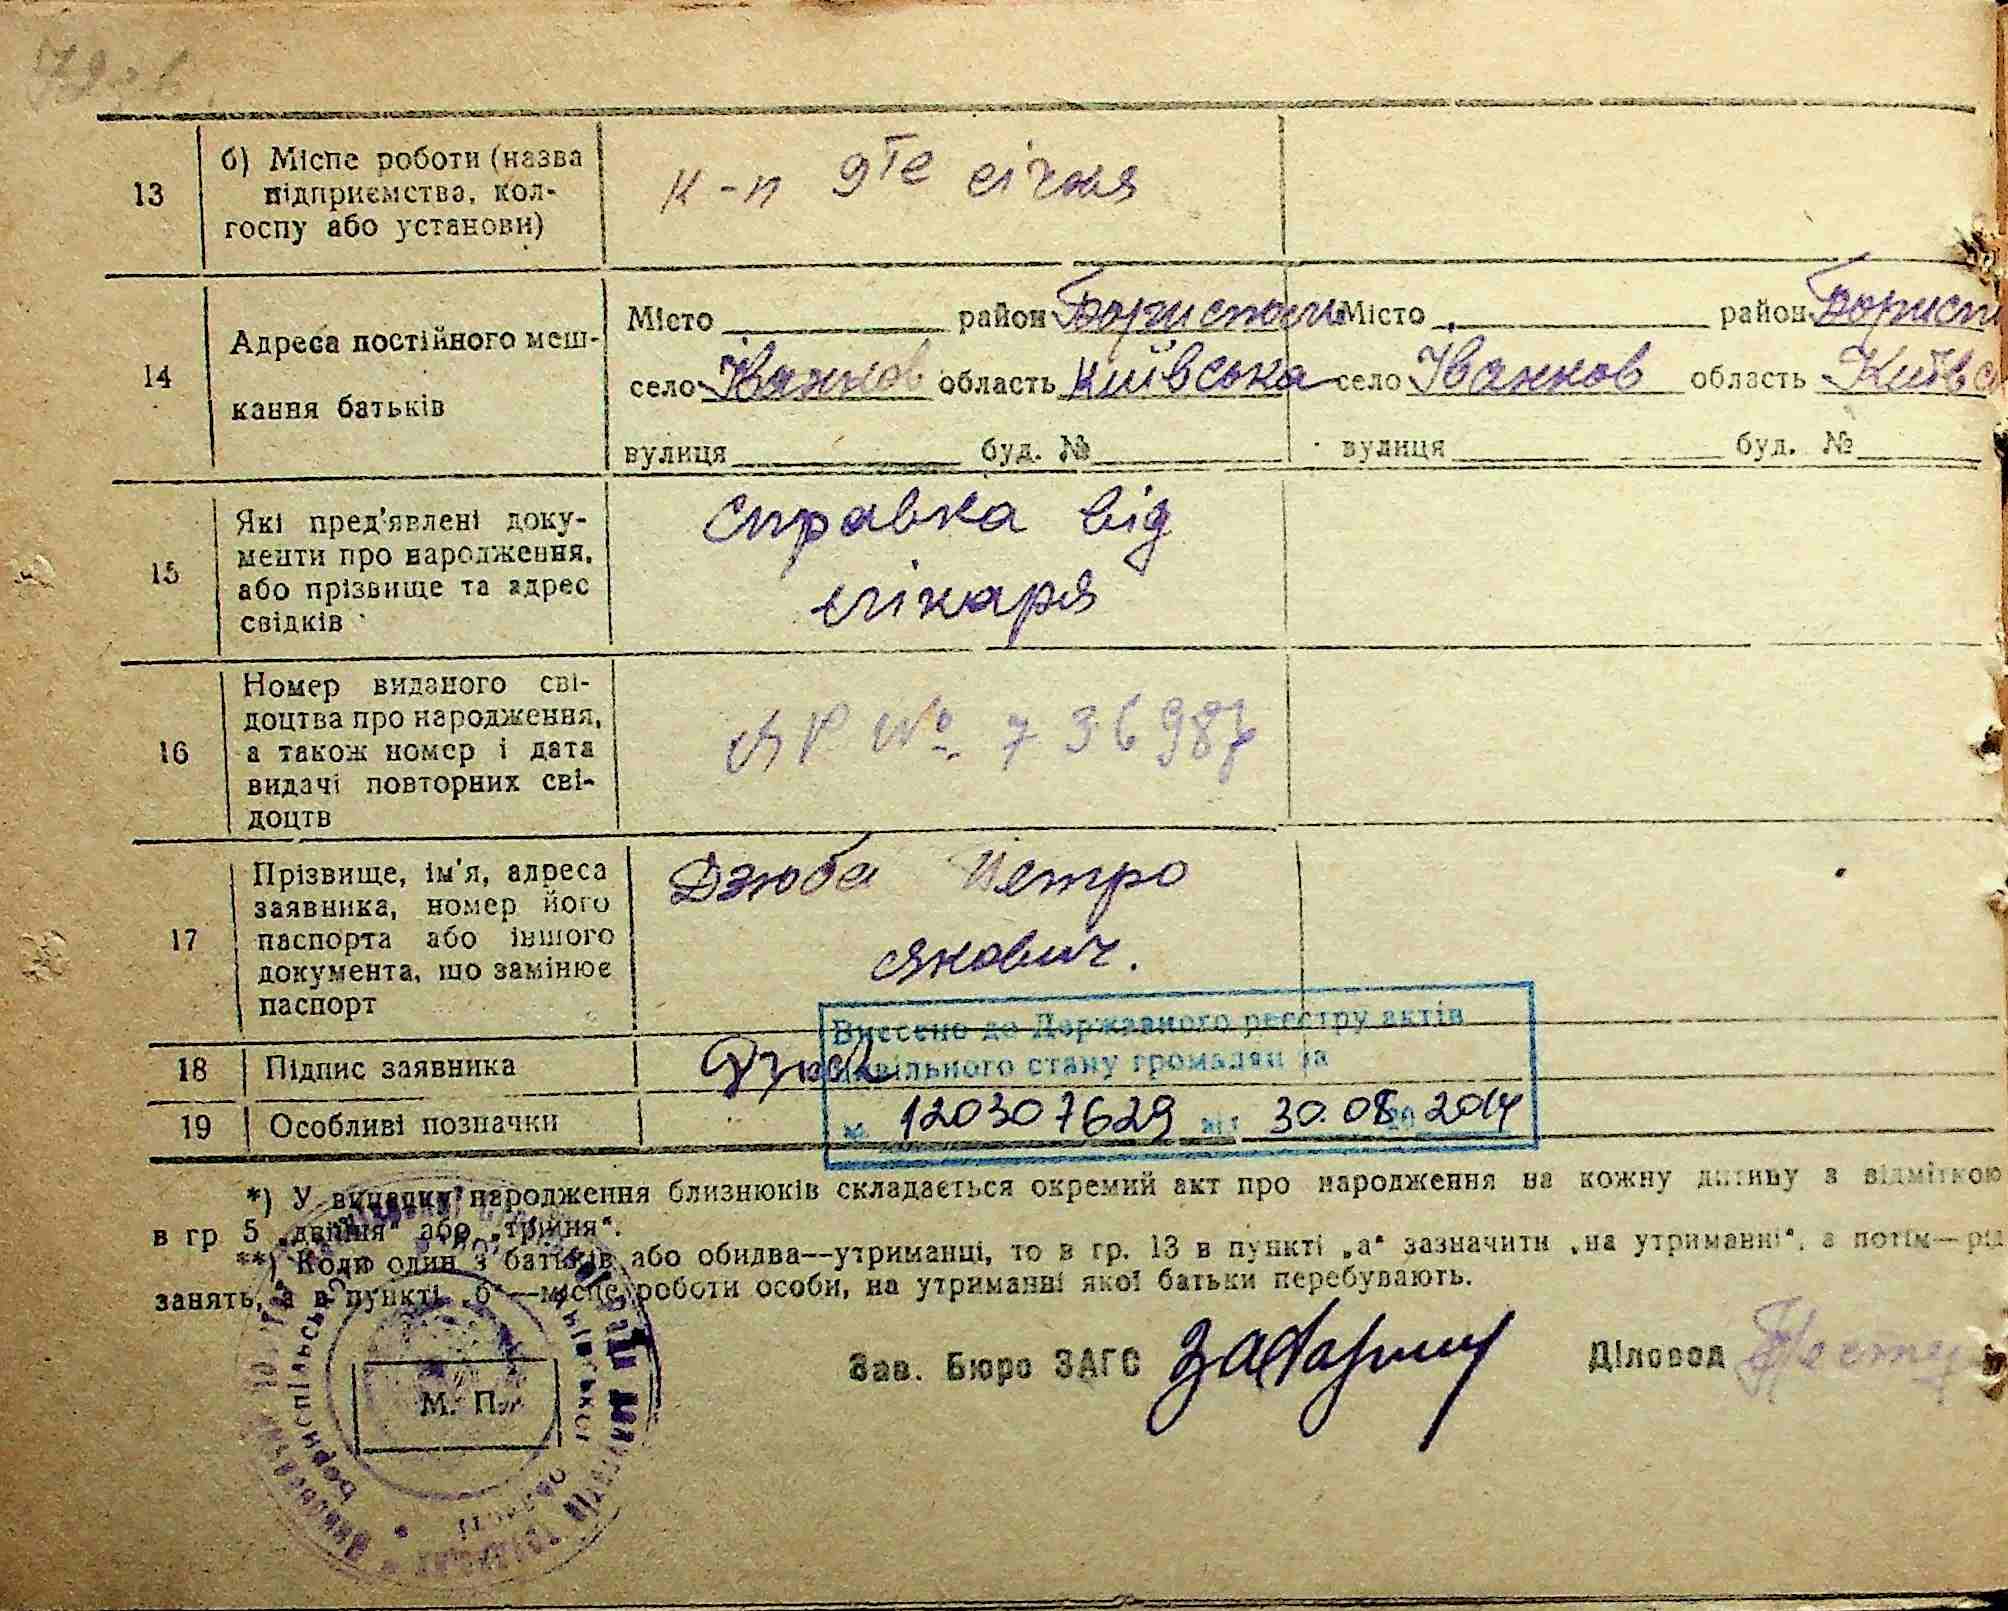 13
б) Місце роботи (назва
підприємства, кол-
госпу або установи)
к-п 9те січня
14
Адреса постійного меш-
кання батьків
Місто район Бориспол
село Іванков область Київська
вулиця буд. №
Місто район Борисп
село Іванков область Київс
вулиця буд. №
15
Які пред'явлені доку-
менти про народження,
або прізвище та адрес
свідків
Справка від
лікаря
16
Номер виданого сві-
доцтва про народження,
а також номер і дата
видачі повторних сві-
доцтв
ЯР № 736987
17
Прізвище, ім'я, адреса
заявника, номер його
паспорта або іншого
документа, що замінює
паспорт
Дзюба Петро
Якович.
18
Підпис заявника
19
Особливі позначки
Внесено до Державного реєстру актів
цивільного стану громадян за
№ 120307629 від 30.08 2014
*) У випадку народження близнюків складається окремий акт про народження на кожну дитину з відміткою
в гр 5 „двійня" або „трійня".
**) Коли один з батьків або обидва—утриманці, то в гр. 13 в пункті „а" зазначити „на утриманні", а потім—рід
занять, а в пункті „б"—місце роботи особи, на утриманні якої батьки перебувають.
Зав. Бюро ЗАГС
Діловод
М. П.
Бориспільсько
Київської області
депутатів трудящих